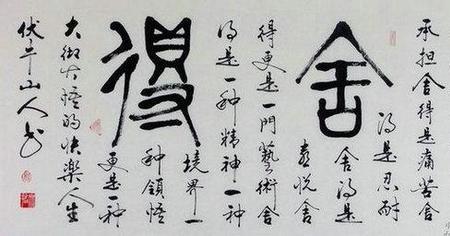 舍得
承担舍得是痛苦舍
得是忍耐
舍得是
喜悦舍
得更是一門藝術舍
得是一种精神一种
境界一
种領悟
更是一种
大徹大悟的快樂人生
伏牛山人书